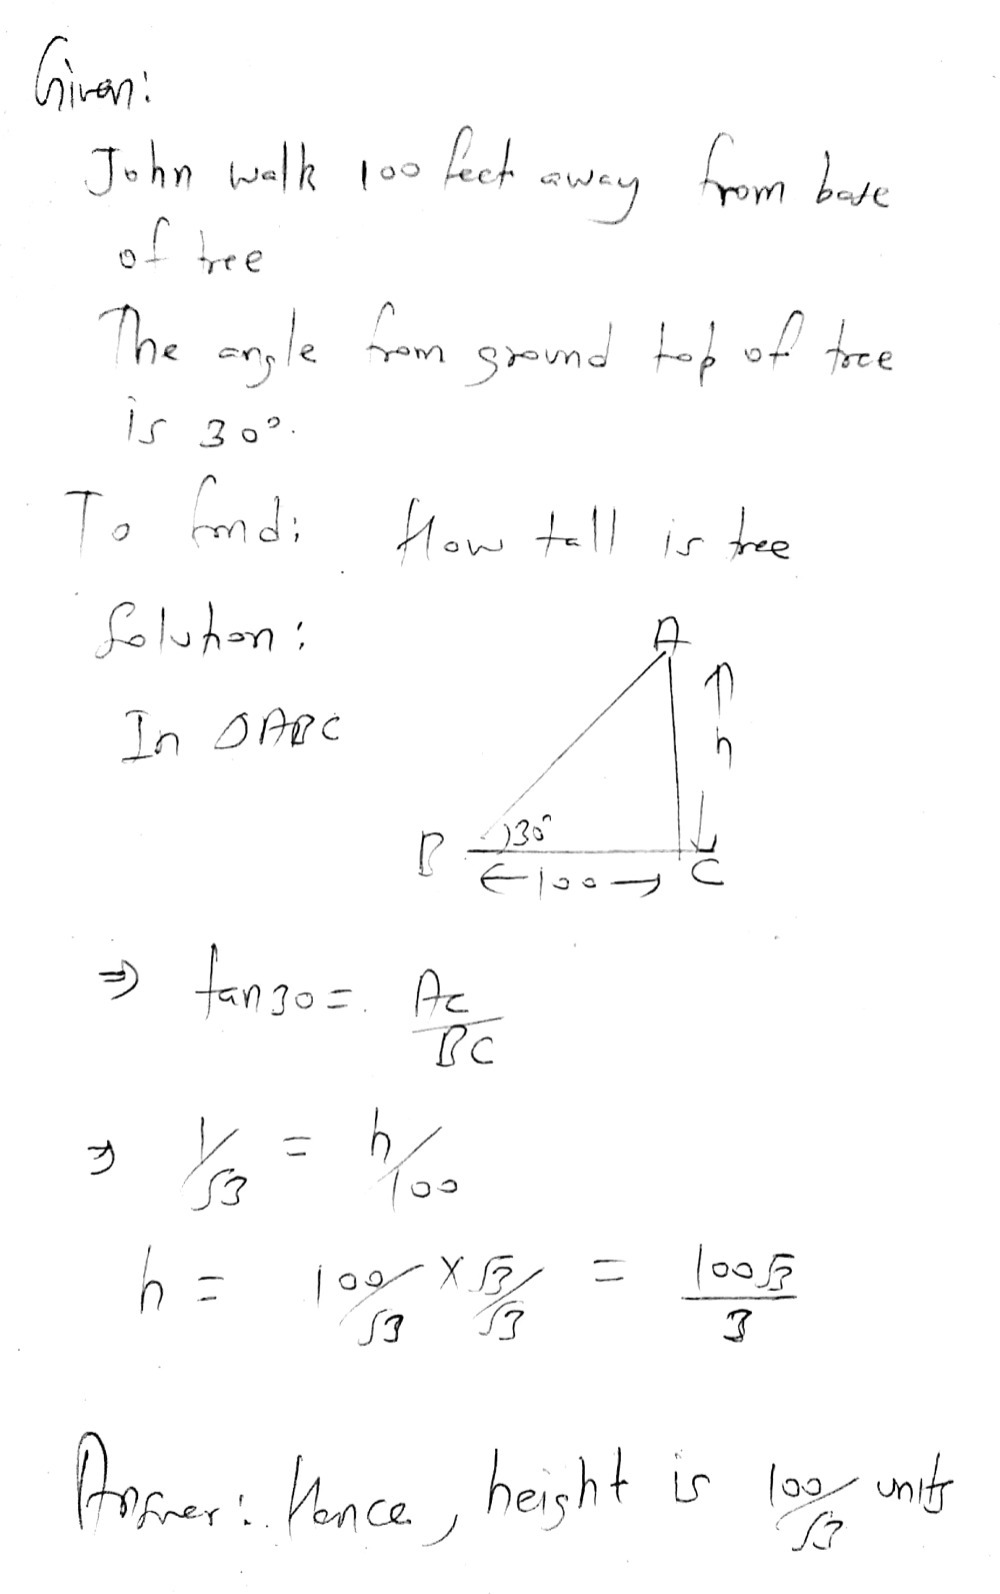 Given:
John walk 100 feet away from base
of tree
The angle from ground top of tree
is 30°.
To find: How tall is tree
Solution:
In ΔABC
A
h
30°
B
←100→ C
⇒ tan30 = AC/BC
⇒ 1/√3 = h/100
h = 100/√3 × √3/√3 = 100√3/3
Answer: Hence, height is 100/√3 units